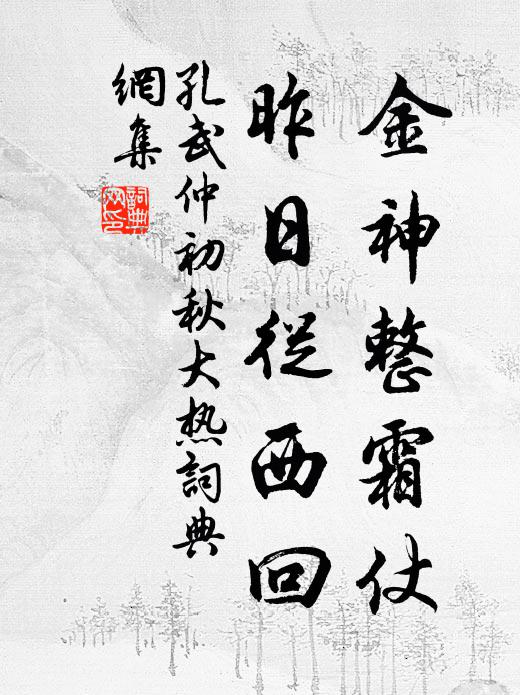 金神整霜仗
昨日從西回
孔武仲初秋大热詞典
網集
詞典
网印